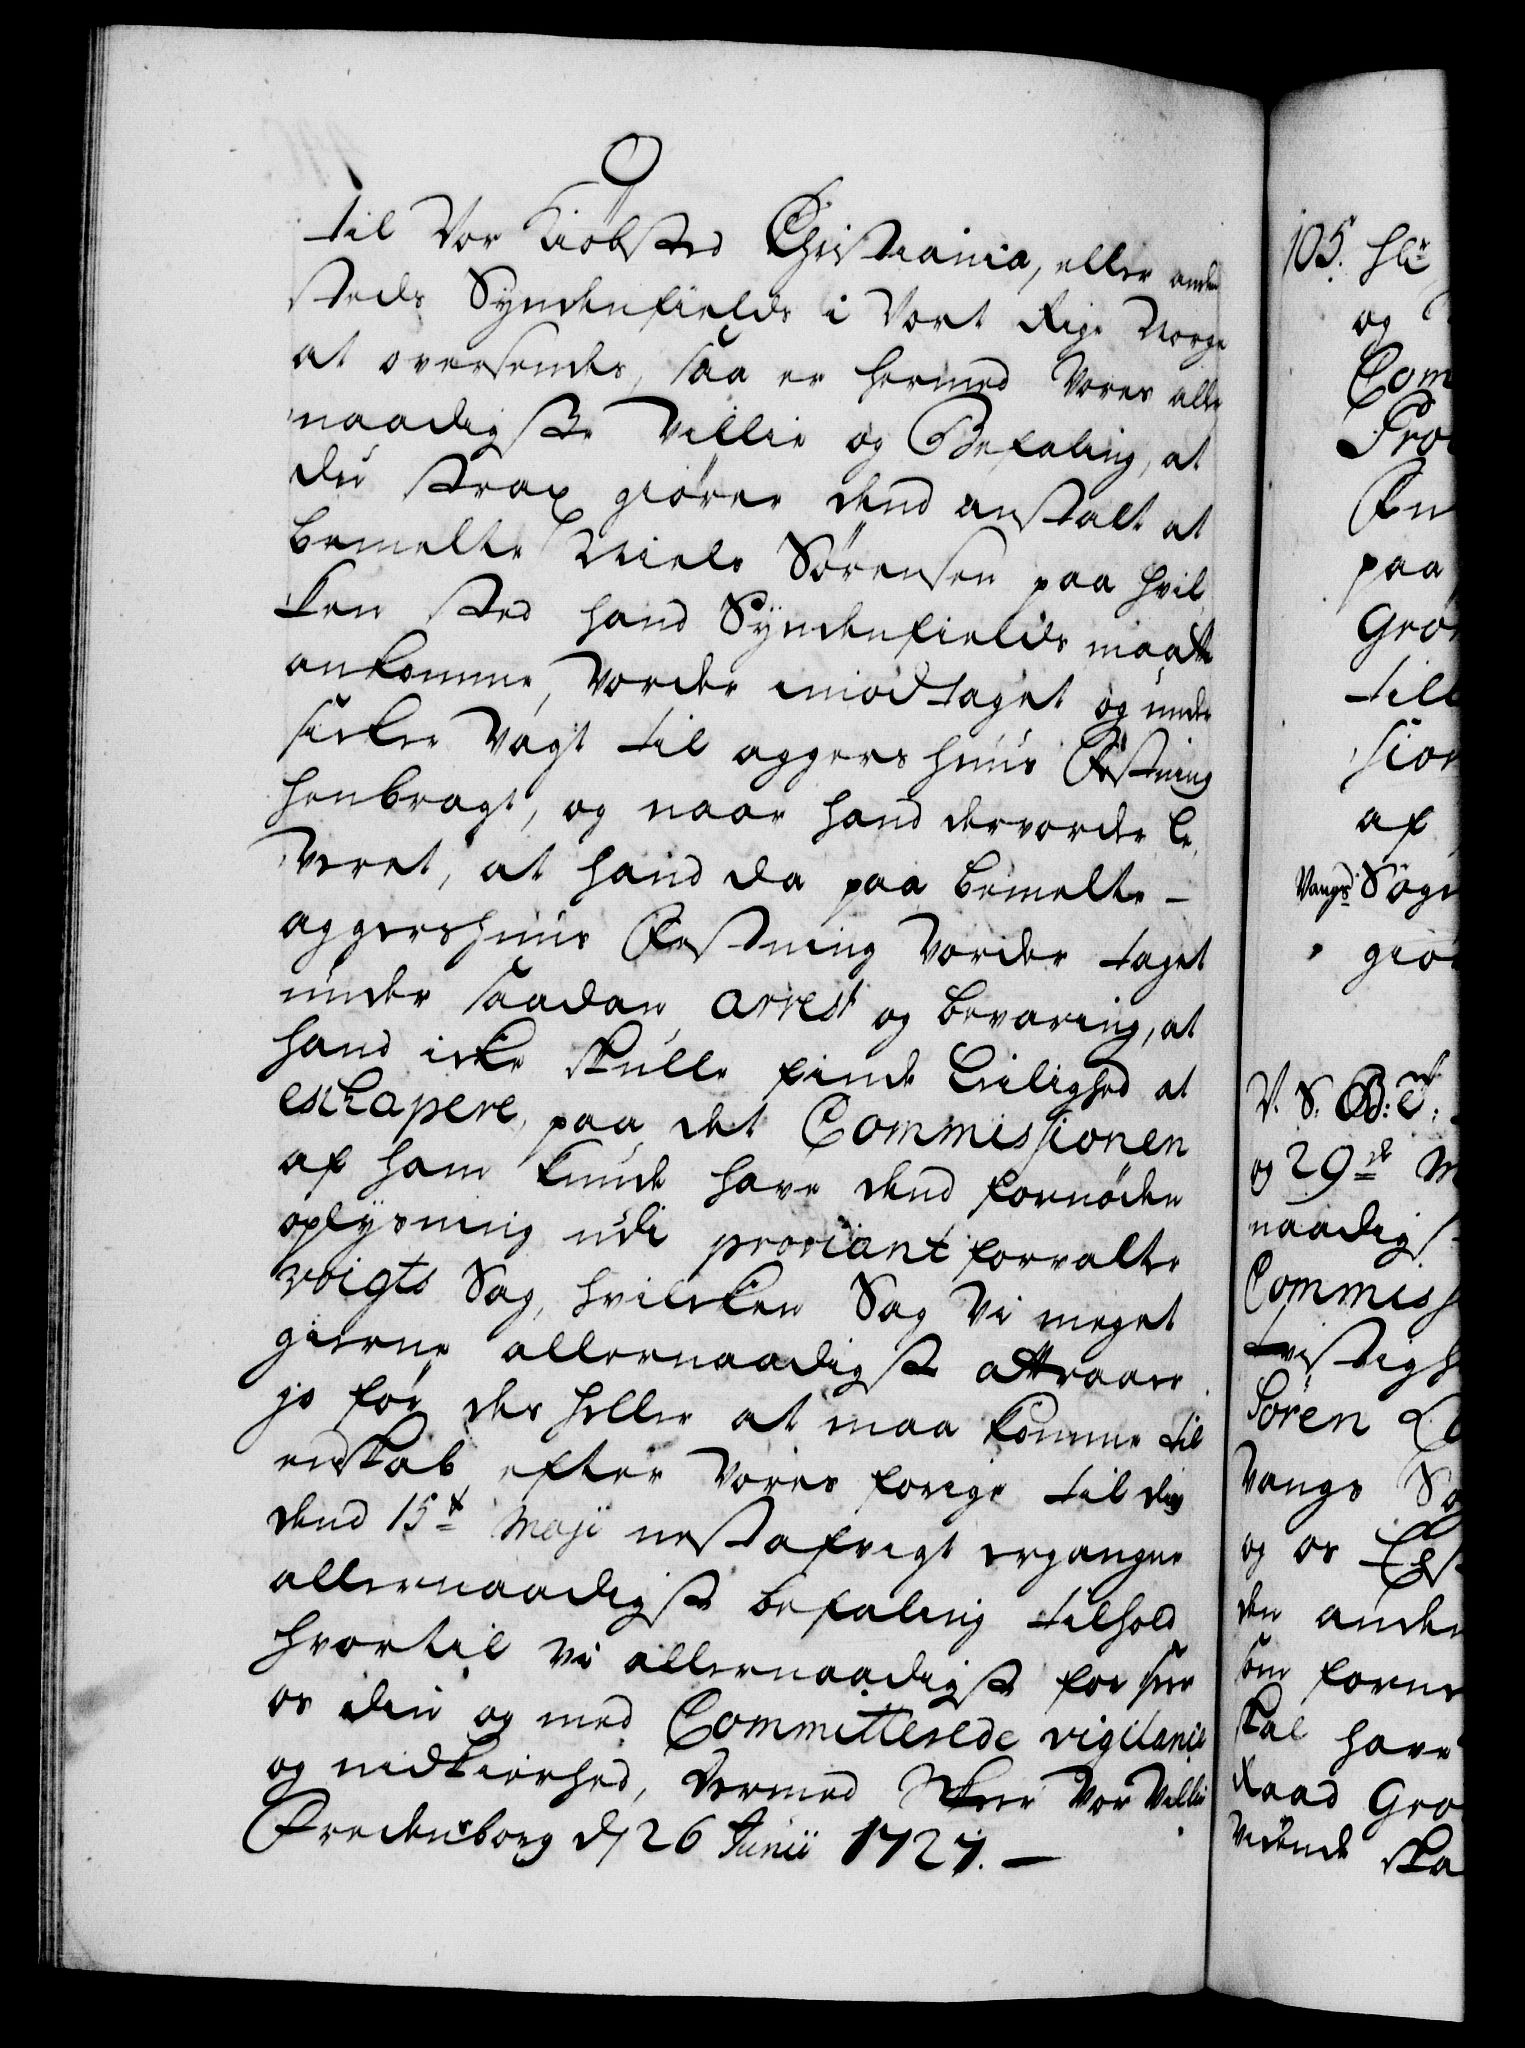 til Vor Kiöbsted Christiania, eller anden
steds Syndenfields i Vort Rige Norge
at oversendes, saa er hermed Vores aller
naadigste Villie og Befaling, at
du strax giörer dend anstalt at
bemelte Niels Sörensen paa hvil
ken sted hand Syndenfields maatte
ankomme, Vorder imodtaget og under
sicker Vagt til aggershuus Festning
henbragt, og naar hand der vorder le,
veret, at hand da paa bemelte –
aggershuus Festning Vorder taget
under saadan arrest og bevaring, at
hand icke skulle finde Leilighed at
eschapere, paa det Commissionen
af ham kunde have dend fornöden
oplysning udi proviant forvalter
voigts Sag, hvilcken Sag Vi meget
gierne allernaadigst attraaer
jo för des heller at maa komme til
endskab efter Vores forige til dig
dend 15t Maji nestafvigt ergangne
allernaadigste befaling tilhold
hvortil Vi allernaadigst forseer
os din og med Committerede vigilance
og nidkierhed, dermed skeer Vor Villie
Fredensborg d/ 26 Junii 1727. —
105. Hr
og
Com
Pro
paa
Gro
till
sion
af
Vangs Sogn
giö
V. S. B: T:
og 29de M
naadigst
Commiss
tvistigh
Sören L
Vangs So
og os
den anden
som forne
skal have
Raad Gro
Vidende ska